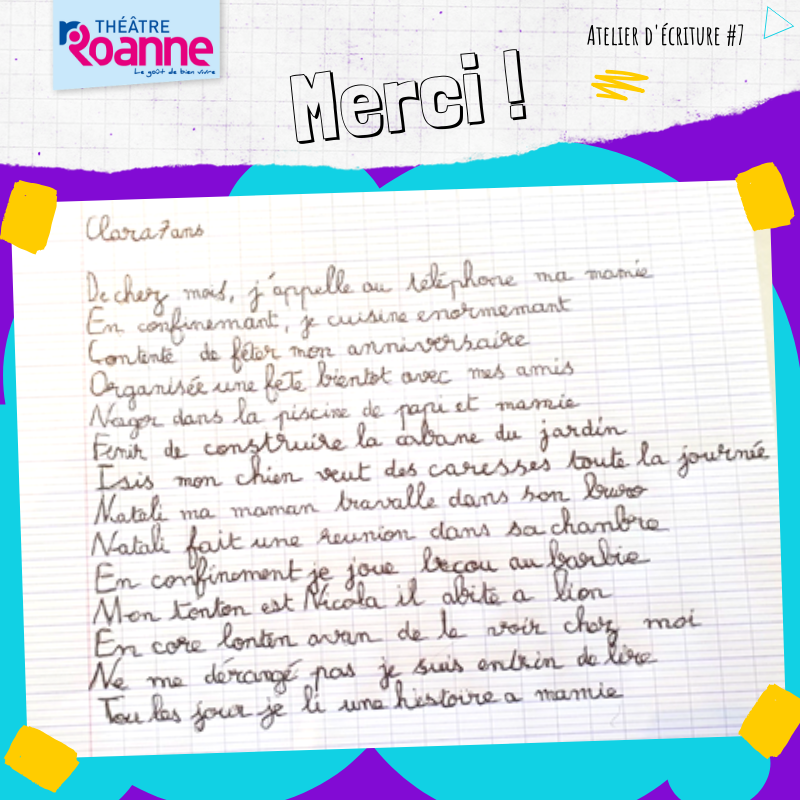 THÉÂTRE
Roanne
Le goût de bien vivre
ATELIER D'ÉCRITURE #7
Merci !
Clara 7 ans
De chez mois, j'appelle au téléphone ma mamie
En confinemant, je cuisine enormemant
Contente de fêter mon anniversaire
Organisée une fete bientot avec mes amis
Nager dans la piscine de papi et mamie
Fenir de construire la cabane du jardin
Isis mon chien veut des caresses toute la journée
Natali ma maman travalle dans son buro
Natali fait une reunion dans sa chanbre
En confinement je joue becou au barbie
Mon tonton est Nicola il abite a lion
En core lonten avan de le voir chez moi
Ne me dérangé pas je suis entrin de lire
Tou les jour je li une histoire a mamie